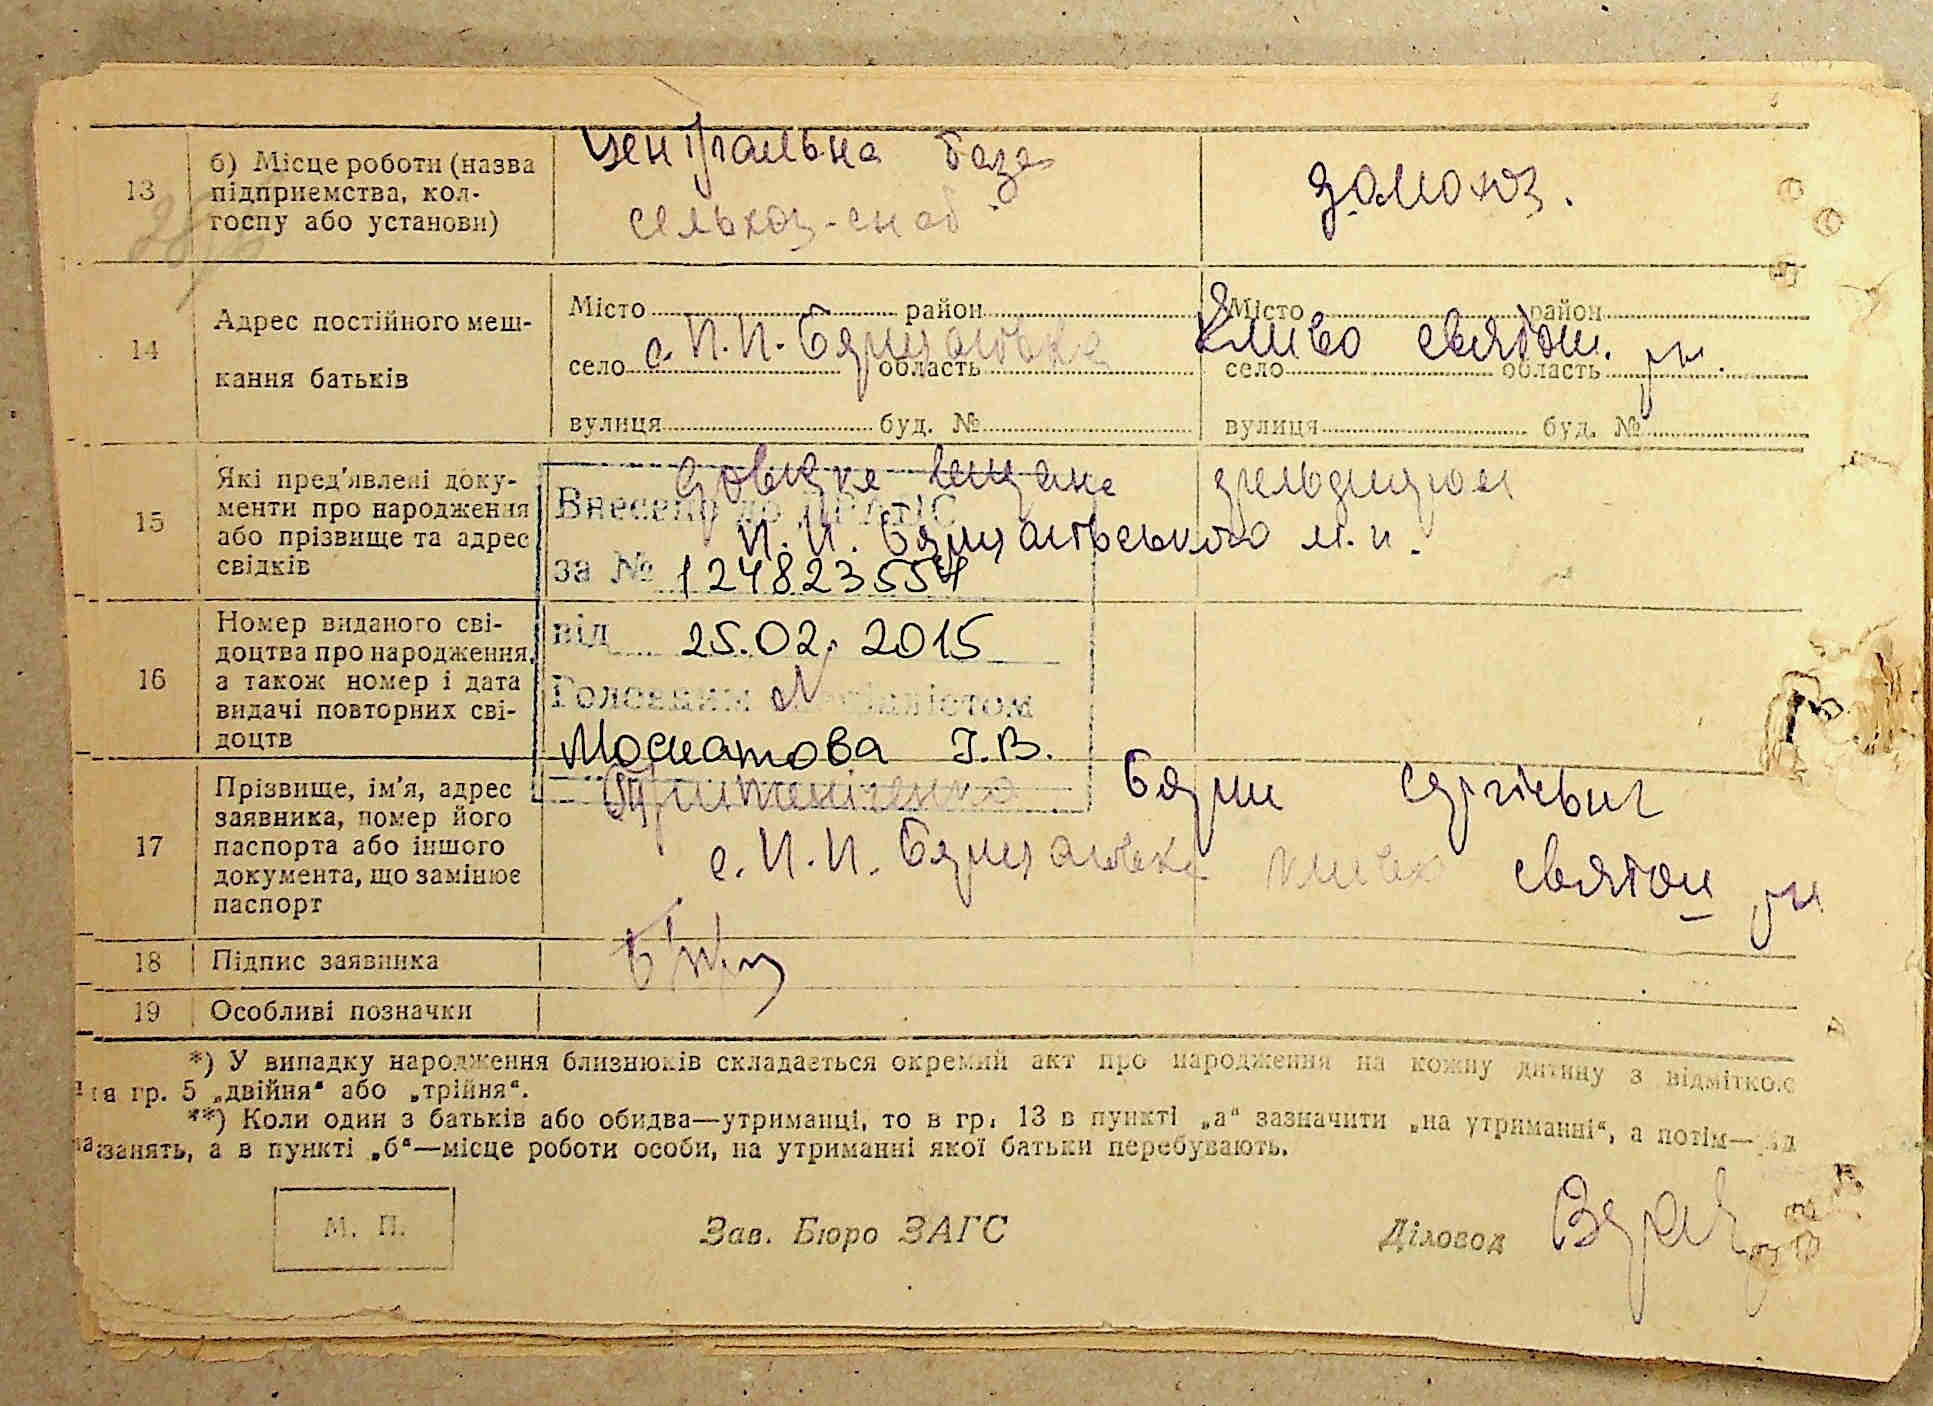 13
б) Місце роботи (назва
підприємства, кол-
госпу або установи)
Центральна база
сельхоз-снаб
домохоз.
14
Адрес постійного меш-
кання батьків
Місто район
с. П.П. Борщагівка
село область
вулиця буд. №
Місто район
Києво Святош. р-н.
село область
вулиця буд. №
15
Які пред'явлені доку-
менти про народження
або прізвище та адрес
свідків
довідка видана фельдшером
П.П. Борщагівського м.п.
Внесено до ДРАЦС
за № 124823554
від 25.02.2015
Головним спеціалістом
16
Номер виданого сві-
доцтва про народження,
а також номер і дата
видачі повторних сві-
доцтв
17
Прізвище, ім'я, адрес
заявника, номер його
паспорта або іншого
документа, що замінює
паспорт
Сергієвич
с. П.П. Борщагівка Києво Святош р-н
18
Підпис заявника
19
Особливі позначки
*) У випадку народження близнюків складається окремий акт про народження на кожну дитину з відміткою
на гр. 5 „двійня“ або „трійня“.
**) Коли один з батьків або обидва—утриманці, то в гр. 13 в пункті „а“ зазначити „на утриманні“, а потім—рід
занять, а в пункті „б“—місце роботи особи, на утриманні якої батьки перебувають.
М. П.
Зав. Бюро ЗАГС
Діловод